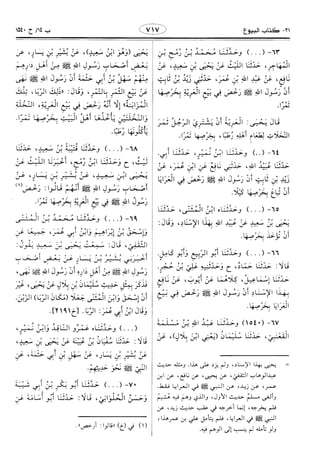 ٢١- كتاب البيوع
٧١٧
ب ١٤/ ح ١٥٤٠
٦٣-(...) وحَدَّثَنَا مُحَمَّدُ بْنُ رُمْحِ بْنِ
الْمُهَاجِرِ، حَدَّثَنَا اللَّيْثُ عَنْ يَحْيَى بْنِ سَعِيدٍ، عَنْ
نَافِعٍ، عَنْ عَبْدِ اللهِ بْنِ عُمَرَ، حَدَّثَنِي زَيْدُ بْنُ ثَابِتٍ
أَنَّ رَسُولَ اللهِ ﷺ رَخَّصَ فِي بَيْعِ الْعَرِيَّةِ بِخَرْصِهَا
تَمْرًا.
قَالَ يَحْيَى: الْعَرِيَّةُ أَنْ يَشْتَرِيَ الرَّجُلُ ثَمَرَ
النَّخَلَاتِ لِطَعَامِ أَهْلِهِ رُطَبًا، بِخَرْصِهَا تَمْرًا.
٦٤-(..) وحَدَّثَنَا ابْنُ نُمَيْرٍ: حَدَّثَنَا أَبِي،
حَدَّثَنَا عُبَيْدُ اللهِ، حَدَّثَنِي نَافِعٌ عَنِ ابْنِ عُمَرَ، عَنْ
زَيْدِ بْنِ ثَابِتٍ أَنَّ رَسُولَ اللهِ ﷺ رَخَّصَ فِي الْعَرَايَا
أَنْ تُبَاعَ بِخَرْصِهَا كَيْلًا.
٦٥-(...) وحَدَّثَنَاه ابْنُ الْمُثَنَّى، حَدَّثَنَا
يَحْيَى بْنُ سَعِيدٍ عَنْ عُبَيْدِ اللهِ بِهَذَا الْإِسْنَادِ، وَقَالَ:
أَنْ تُؤْخَذَ بِخَرْصِهَا.
٦٦-(...) وحَدَّثَنَا أَبُو الرَّبِيعِ وَأَبُو كَامِلٍ،
قَالَا: حَدَّثَنَا حَمَّادٌ، ح وَحَدَّثَنِيهِ عَلِيُّ بْنُ حُجْرٍ،
حَدَّثَنَا إِسْمَاعِيلُ، كِلَاهُمَا عَنْ أَيُّوبَ، عَنْ نَافِعٍ
بِهَذَا الْإِسْنَادِ أَنَّ رَسُولَ اللهِ ﷺ رَخَّصَ فِي بَيْعِ
الْعَرَايَا بِخَرْصِهَا.
٦٧-(١٥٤٠) وحَدَّثَنَا عَبْدُ اللهِ بْنُ مَسْلَمَةَ
الْقَعْنَبِيُّ، حَدَّثَنَا سُلَيْمَانُ (يَعْنِي ابْنَ بِلَالٍ) عَنْ
= يحيى بهذا الإسناد، ولم يزد على هذا. ومثله حديث
عبدالوهاب الثقفيّ، عن يحيى، عن نافع، عن ابن
عمر، عن زيد، عن النبي ﷺ في العرايا فقط.
فلم يخرجه، إنما أخرجه في عقب حديث زيد، عن
النبي ﷺ في العرايا،
يَحْيَى (وَهُوَ ابْنُ سَعِيدٍ)، عَنْ بُشَيْرِ بْنِ يَسَارٍ، عَنْ
بَعْضِ أَصْحَابِ رَسُولِ اللهِ ﷺ مِنْ أَهْلِ دَارِهِمْ
مِنْهُمْ سَهْلُ بْنُ أَبِي حَثْمَةَ أَنَّ رَسُولَ اللهِ ﷺ نَهَى
عَنْ بَيْعِ الثَّمَرِ بِالتَّمْرِ، وَقَالَ: «ذَلِكَ الرِّبَا، تِلْكَ
الْمُزَابَنَةُ» إِلَّا أَنَّهُ رَخَّصَ فِي بَيْعِ الْعَرِيَّةِ، النَّخْلَةِ
وَالنَّخْلَتَيْنِ يَأْخُذُهَا أَهْلُ الْبَيْتِ بِخَرْصِهَا تَمْرًا،
يَأْكُلُونَهَا رُطَبًا.
٦٨-(...) وحَدَّثَنَا قُتَيْبَةُ بْنُ سَعِيدٍ، حَدَّثَنَا
لَيْثٌ، ح وحَدَّثَنَا ابْنُ رُمْحٍ، أَخْبَرَنَا اللَّيْثُ عَنْ
يَحْيَى ابْنِ سَعِيدٍ، عَنْ بُشَيْرِ بْنِ يَسَارٍ، عَنْ
أَصْحَابِ رَسُولِ اللهِ ﷺ أَنَّهُمْ قَالُوا: رَخَّصَ(١)
رَسُولُ اللهِ ﷺ فِي بَيْعِ الْعَرِيَّةِ بِخَرْصِهَا تَمْرًا.
٦٩-(...) وحَدَّثَنَا مُحَمَّدُ بْنُ الْمُثَنَّى
وَإِسْحَقُ بْنُ إِبْرَاهِيمَ وَابْنُ أَبِي عُمَرَ، جَمِيعًا عَنِ
الثَّقَفِيِّ، قَالَ: سَمِعْتُ يَحْيَى بْنَ سَعِيدٍ يَقُولُ:
أَخْبَرَنِي بُشَيْرُ بْنُ يَسَارٍ عَنْ بَعْضِ أَصْحَابِ
رَسُولِ اللهِ ﷺ مِنْ أَهْلِ دَارِهِ أَنَّ رَسُولَ اللهِ ﷺ نَهَى،
فَذَكَرَ بِمِثْلِ حَدِيثِ سُلَيْمَانَ بْنِ بِلَالٍ عَنْ يَحْيَى، غَيْرَ
أَنَّ إِسْحَقَ وَابْنَ الْمُثَنَّى جَعَلَا (مَكَانَ الرِّبَا) الزَّبْنَ.
وَقَالَ ابْنُ أَبِي عُمَرَ: الرِّبَا. [خ٢١٩١].
(...) وحَدَّثَنَاه عَمْرٌو النَّاقِدُ وَابْنُ نُمَيْرٍ،
قَالَا: حَدَّثَنَا سُفْيَانُ بْنُ عُيَيْنَةَ عَنْ يَحْيَى بْنِ سَعِيدٍ،
عَنْ بُشَيْرِ بْنِ يَسَارٍ، عَنْ سَهْلِ بْنِ أَبِي حَثْمَةَ، عَنِ
النَّبِيِّ ﷺ نَحْوَ حَدِيثِهِمْ.
٧٠-(...) حَدَّثَنَا أَبُو بَكْرِ بْنُ أَبِي شَيْبَةَ
وَحَسَنٌ الْحُلْوَانِيُّ، قَالَا: حَدَّثَنَا أَبُو أُسَامَةَ عَنِ
(١) في (خ) «قالوا: أرخص».